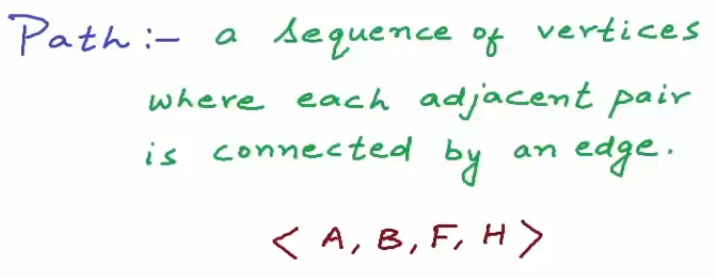 Path :- a sequence of vertices
where each adjacent pair
is connected by an edge.
< A, B, F, H >